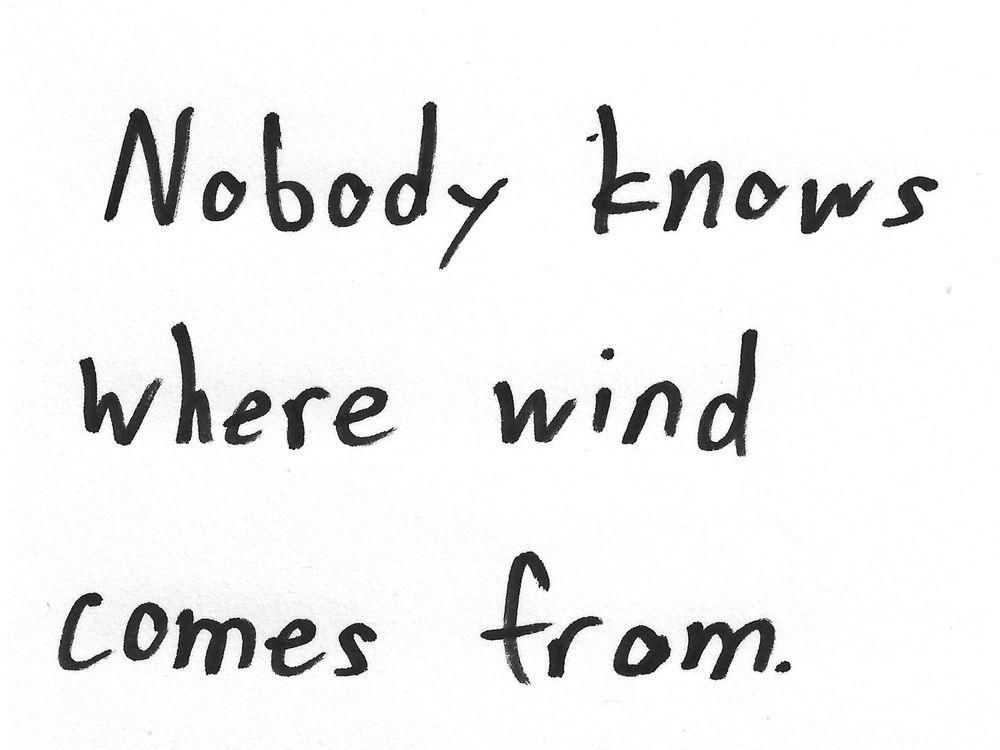 Nobody knows
where wind
comes from.